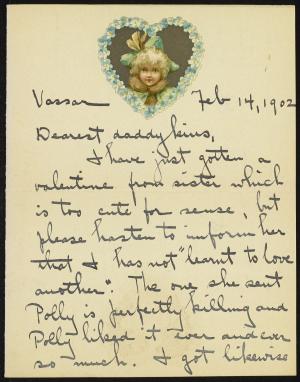 Vassar Feb 14, 1902
Dearest daddykins,
I have just gotten a
valentine from sister which
is too cute for sense, but
please hasten to inform her
that I has not "learnt to love
another". The one she sent
Polly is perfectly killing and
Polly liked it ever and ever
so much. I got likewise